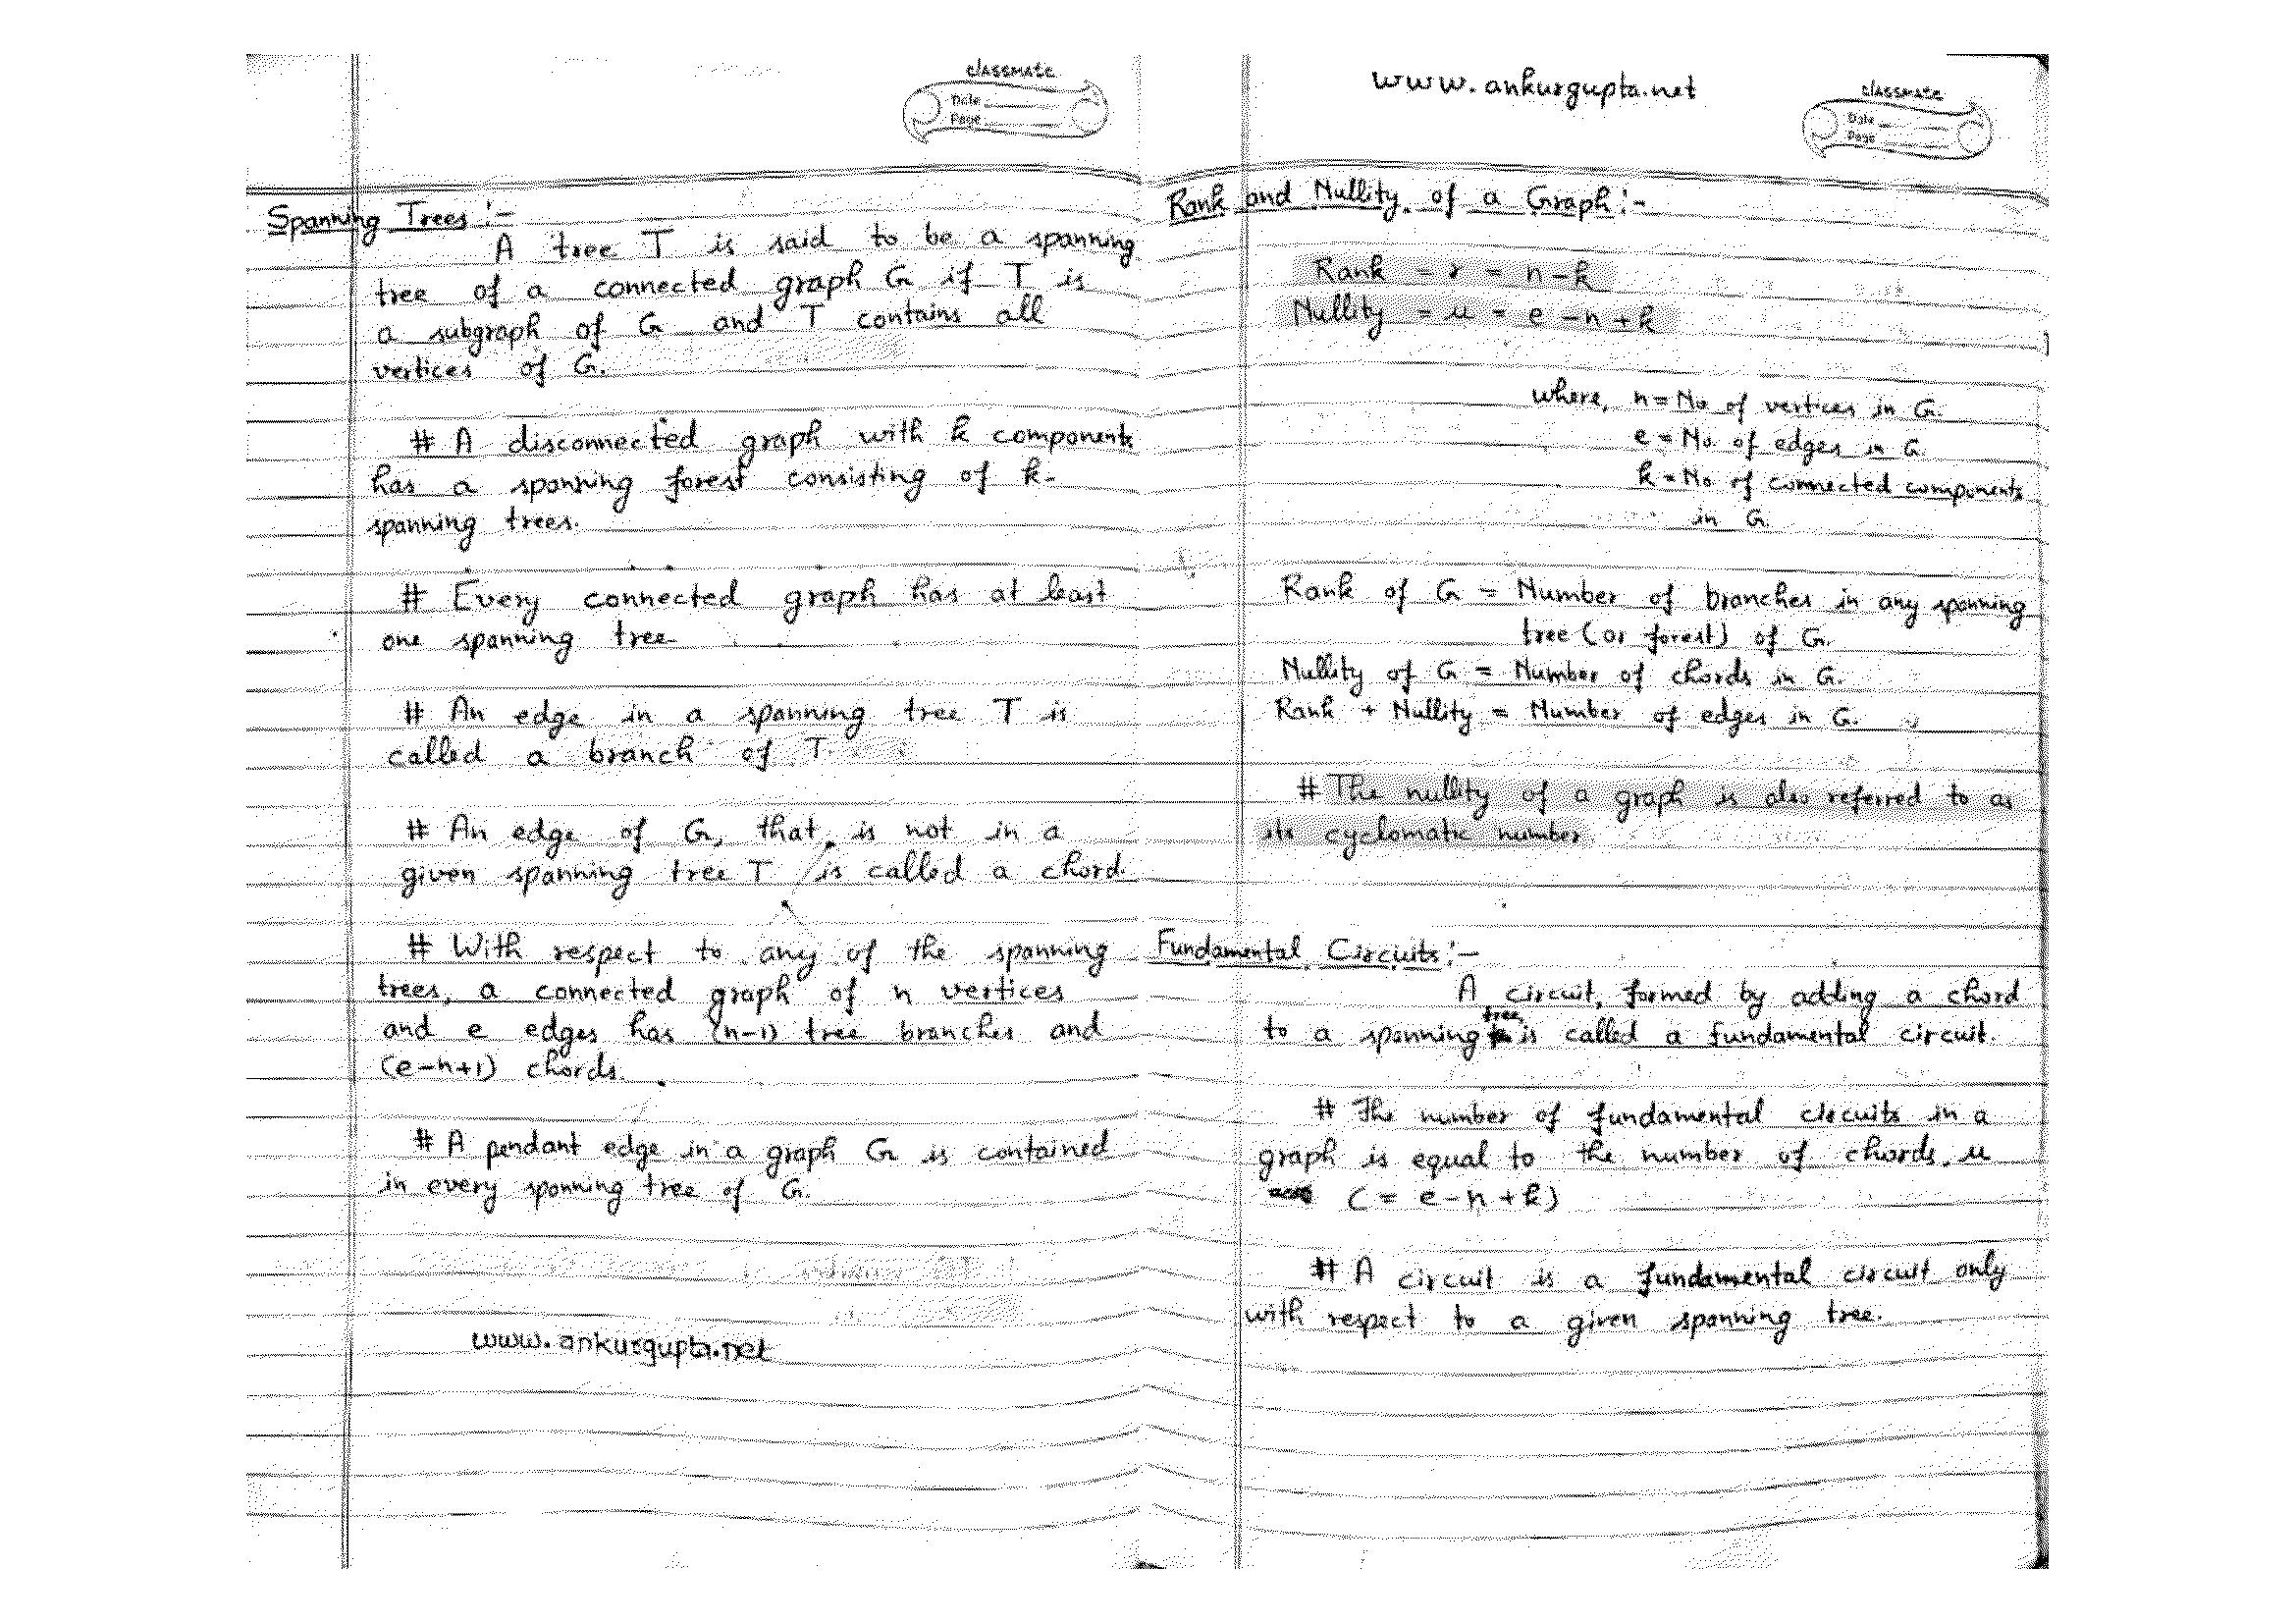 classmate
Date
Page
Spanning Trees :-
A tree T is said to be a spanning
tree of a connected graph G if T is
a subgraph of G and T contains all
vertices of G.
# A disconnected graph with k components
has a spanning forest consisting of k-
spanning trees.
# Every connected graph has at least
one spanning tree.
# An edge in a spanning tree T is
called a branch of T.
# An edge of G, that is not in a
given spanning tree T is called a chord.
# With respect to any of the spanning
trees, a connected graph of n vertices
and e edges has (n-1) tree branches and
(e-n+1) chords.
# A pendant edge in a graph G is contained
in every spanning tree of G.
www.ankurgupta.net
www.ankurgupta.net
classmate
Date
Page
Rank and Nullity of a Graph :-
Rank = r = n-k
Nullity = μ = e-n+k
where, n = No of vertices in G.
e = No. of edges in G.
k = No. of connected components
in G.
Rank of G = Number of branches in any spanning
tree (or forest) of G.
Nullity of G = Number of chords in G.
Rank + Nullity = Number of edges in G.
# The nullity of a graph is also referred to as
its cyclomatic number.
Fundamental Circuits :-
A circuit, formed by adding a chord
to a spanning tree, is called a fundamental circuit.
# The number of fundamental circuits in a
graph is equal to the number of chords, μ
(= e-n+k)
# A circuit is a fundamental circuit only
with respect to a given spanning tree.